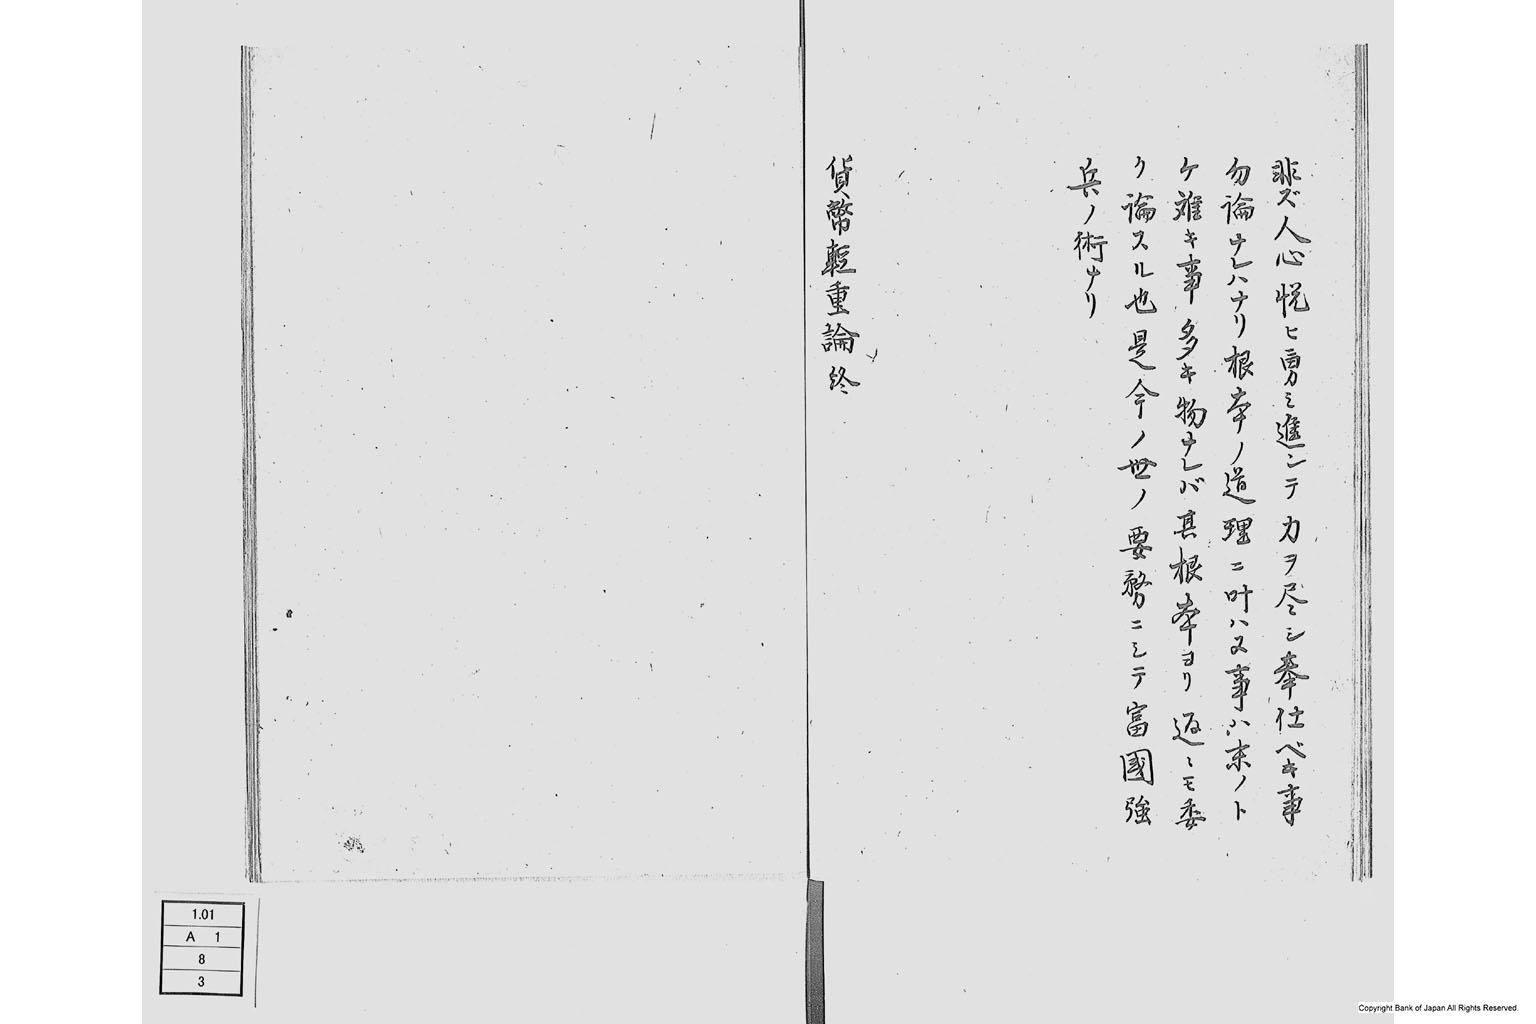 非ズ人心悦ヒ勇ミ進ンテ力ヲ尽シ奉仕ベキ事
勿論ナレハナリ根本ノ道理ニ叶ハヌ事ハ末ノト
ケ難キ事多キ物ナレバ其根本ヨリ返〻モ委
ク論スル也是今ノ世ノ要務ニシテ富國強
兵ノ術ナリ
貨幣軽重論終
1.01
A 1
8
3
Copyright Bank of Japan All Rights Reserved.